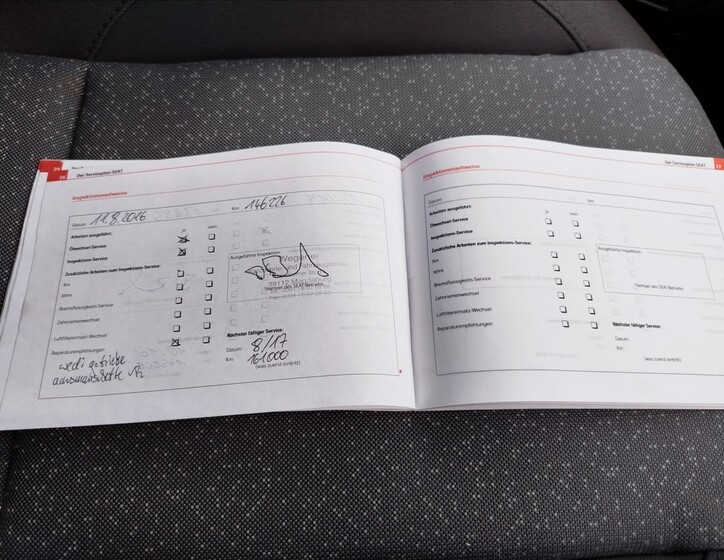 24
26
Der Serviceplan SEAT
Inspektionsnachweise
Datum: 11.8.2016
Km: 146226
Arbeiten ausgeführt:
ja
nein
Ölwechsel-Service
Inspektions-Service
Zusätzliche Arbeiten zum Inspektions-Service:
Km
Jahre
Bremsflüssigkeits-Service
Zahnriemenwechsel
Luftfiltereinsatz-Wechsel
Reparaturempfehlungen
Ausgeführte Inspektion:
39112 Magdeburg
Stempel des SEAT Betriebs
Nächster fälliger Service:
Datum: 8/17
Km: 161000
(was zuerst eintritt)
Der Serviceplan SEAT
27
Inspektionsnachweise
Datum:
Km:
Arbeiten ausgeführt:
ja
nein
Ölwechsel-Service
Inspektions-Service
Zusätzliche Arbeiten zum Inspektions-Service:
Km
Jahre
Bremsflüssigkeits-Service
Zahnriemenwechsel
Luftfiltereinsatz-Wechsel
Reparaturempfehlungen
Ausgeführte Inspektion:
Stempel des SEAT Betriebs
Nächster fälliger Service:
Datum:
Km:
(was zuerst eintritt)